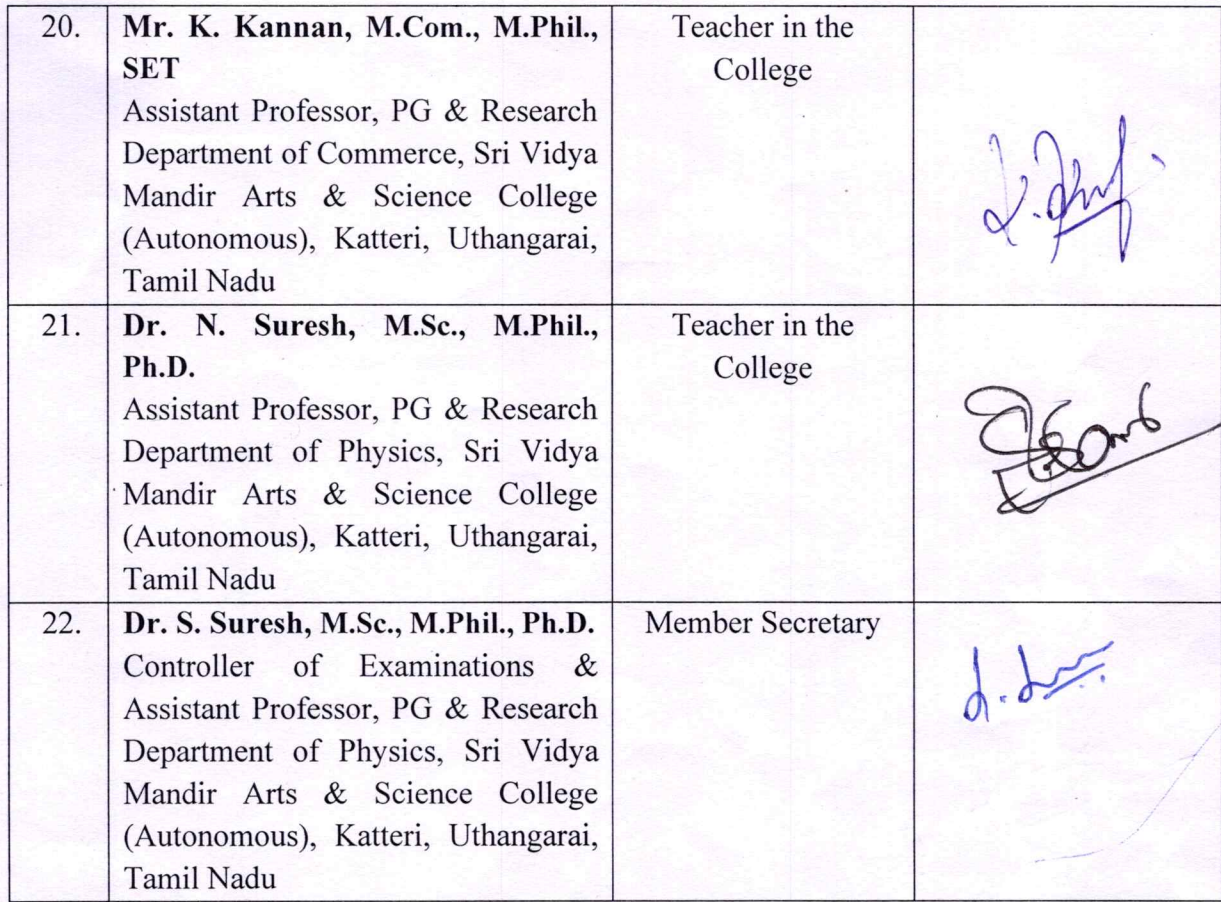 20.
Mr. K. Kannan, M.Com., M.Phil.,
SET
Assistant Professor, PG & Research
Department of Commerce, Sri Vidya
Mandir Arts & Science College
(Autonomous), Katteri, Uthangarai,
Tamil Nadu
Teacher in the
College
21.
Dr. N. Suresh, M.Sc., M.Phil.,
Ph.D.
Assistant Professor, PG & Research
Department of Physics, Sri Vidya
Mandir Arts & Science College
(Autonomous), Katteri, Uthangarai,
Tamil Nadu
Teacher in the
College
22.
Dr. S. Suresh, M.Sc., M.Phil., Ph.D.
Controller of Examinations &
Assistant Professor, PG & Research
Department of Physics, Sri Vidya
Mandir Arts & Science College
(Autonomous), Katteri, Uthangarai,
Tamil Nadu
Member Secretary